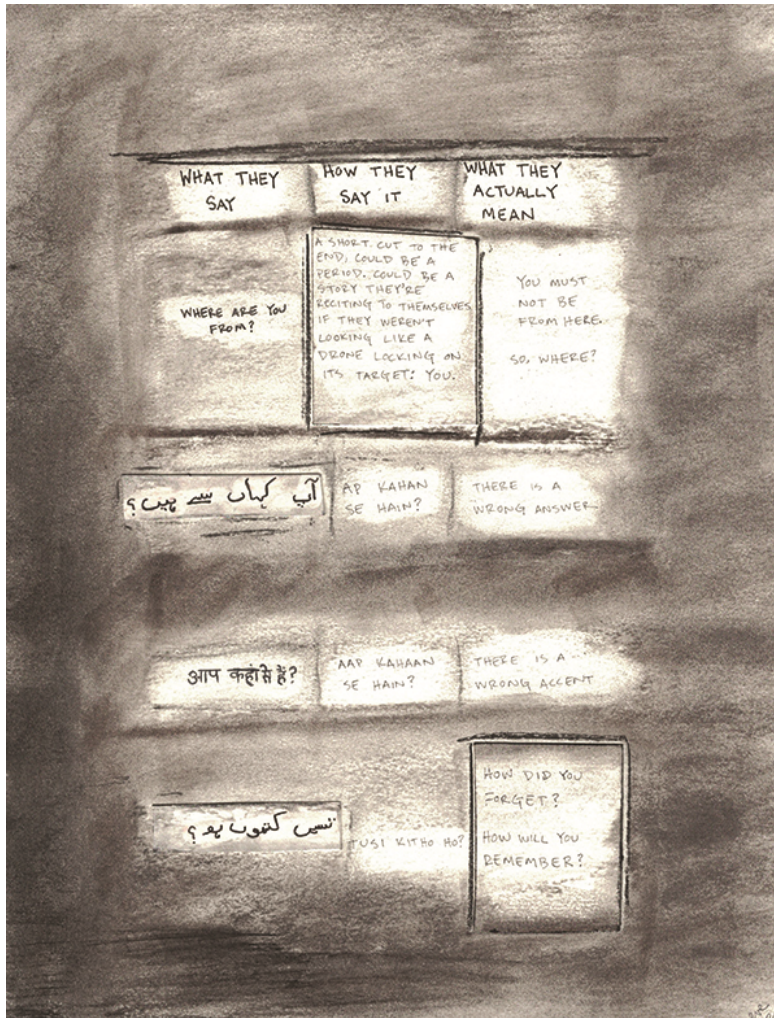 WHAT THEY
SAY
HOW THEY
SAY IT
WHAT THEY
ACTUALLY
MEAN
WHERE ARE YOU
FROM?
A SHORT CUT TO THE
END, COULD BE A
PERIOD. COULD BE A
STORY THEY'RE
RECITING TO THEMSELVES
IF THEY WEREN'T
LOOKING LIKE A
DRONE LOCKING ON
ITS TARGET: YOU.
YOU MUST
NOT BE
FROM HERE.
SO, WHERE?
آپ کہاں سے ہیں؟
AP KAHAN
SE HAIN?
THERE IS A
WRONG ANSWER
आप कहां से हैं?
AAP KAHAAN
SE HAIN?
THERE IS A
WRONG ACCENT
تسیں کتھوں ہو؟
TUSI KITHO HO?
HOW DID YOU
FORGET?
HOW WILL YOU
REMEMBER?